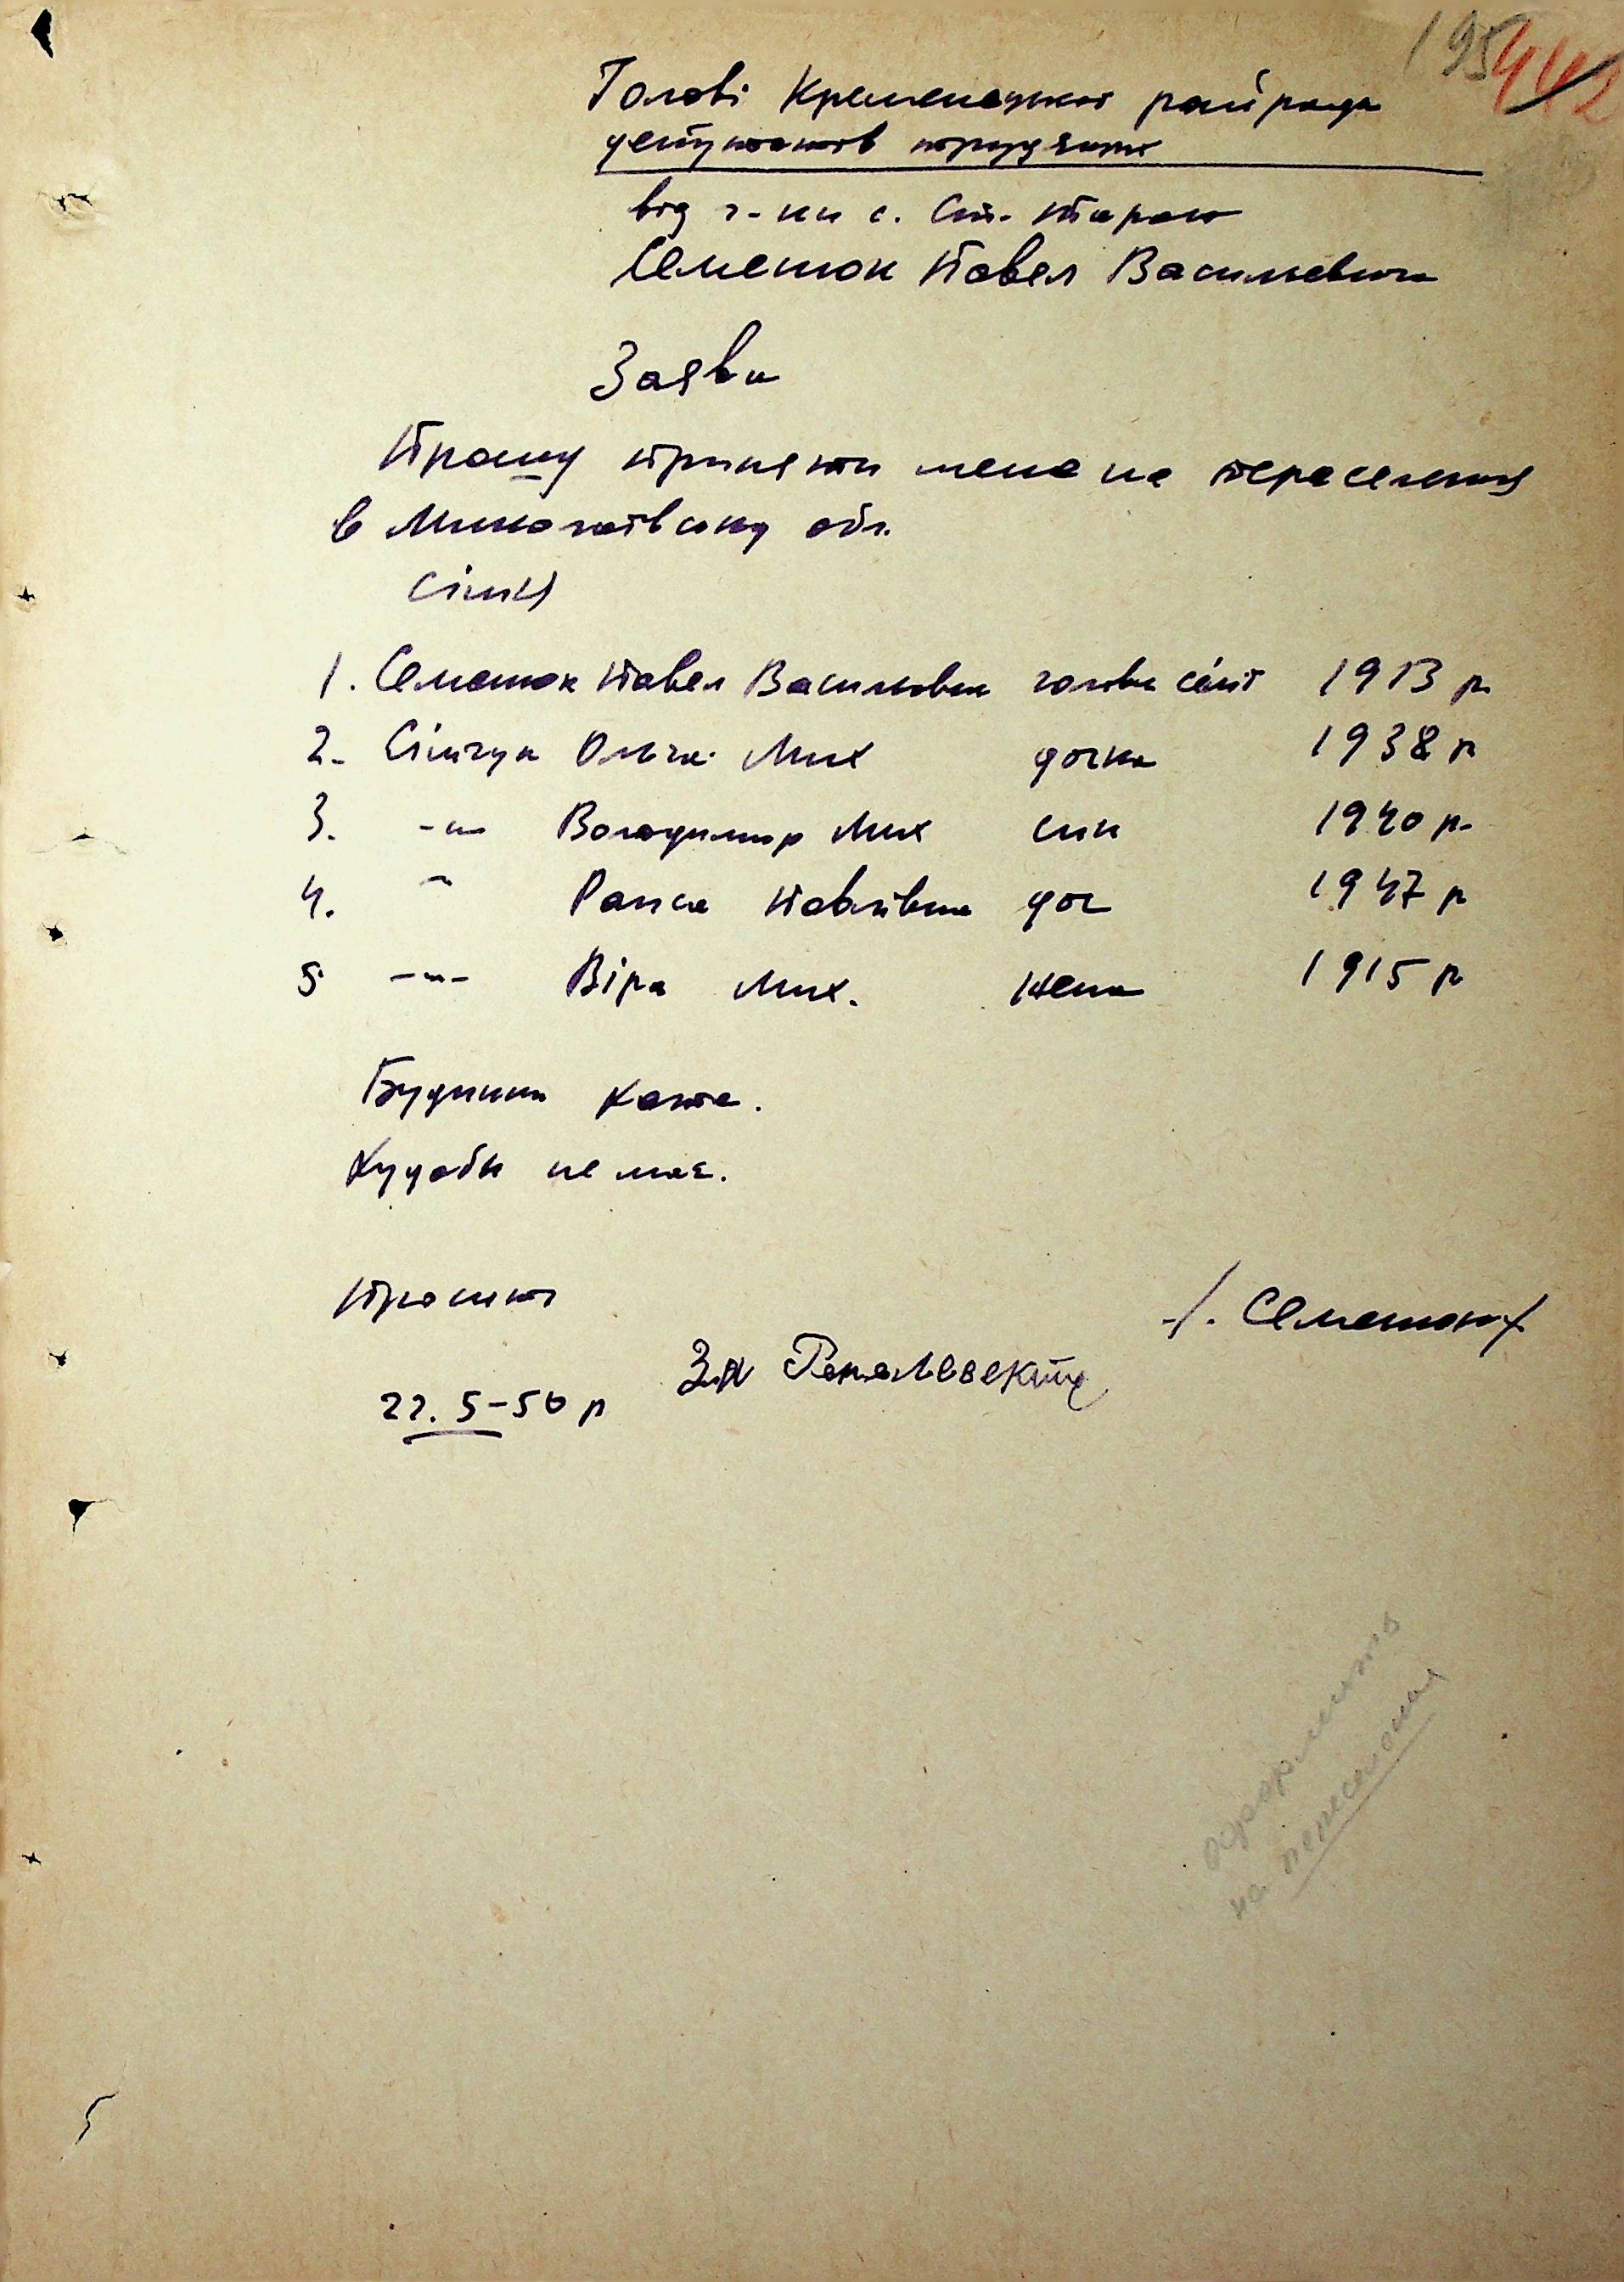 195 442
Голові Кременецької райради
депутатів трудящих
від г-на с. Ст. Тараж
Семенюк Павел Васильевич
Заява
Прошу приняти мене на переселення
в Миколаївську обл.
Сімя
1. Семенюк Павел Васильович голова сімї 1913 р.
2. Сімчук Ольга Мих дочка 1938 р
3. -"- Володимир Мих син 1940 р.
4. " Раиса Павлівна доч 1947 р
5 -"- Віра Мих. жена 1915 р
Будинки хата.
Худоби не має.
Просит
/. Семенюк /
За
22. 5-50 р
оформить
на переселения